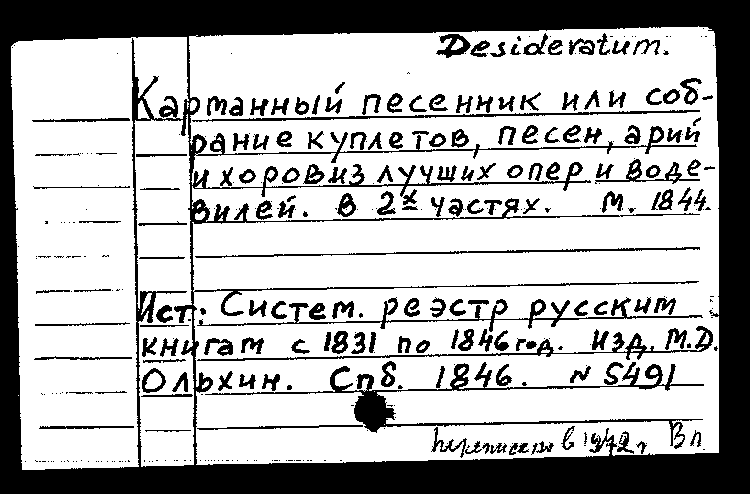 Desideratum.
Карманный песенник или соб-
рание куплетов, песен, арий
и хоров из лучших опер и воде-
вилей. В 2х частях. М. 1844.
Ист: Систем. реэстр русским
книгам с 1831 по 1846 год. Изд. М.Д.
Ольхин. Спб. 1846. N 5491
в 1942 г Вл